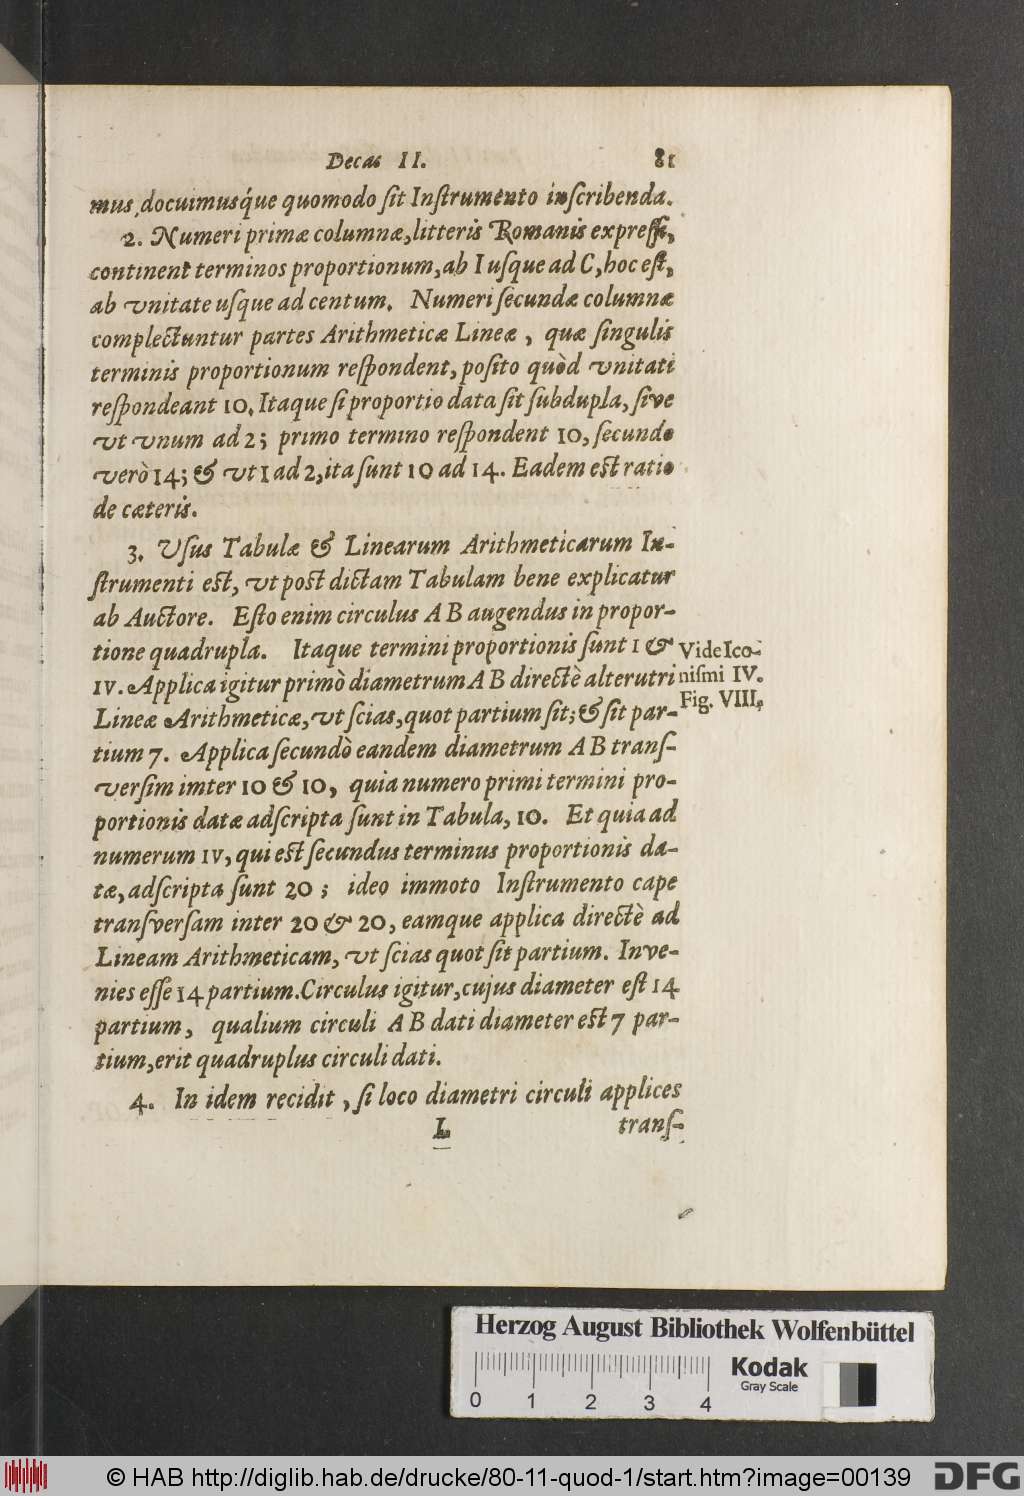 Decas II. 81
mus, docuimusq́ue quomodo ſit Inſtrumento inſcribenda.
2. Numeri primæ columnæ, litteris Romanis expreſſi,
continent terminos proportionum, ab I uſque ad C, hoc eſt,
ab vnitate uſque ad centum. Numeri ſecundæ columnæ
complectuntur partes Arithmeticæ Lineæ, quæ ſingulis
terminis proportionum reſpondent, poſito quòd vnitati
reſpondeant 10. Itaque ſi proportio data ſit ſubdupla, ſive
vt vnum ad 2; primo termino reſpondent 10, ſecundo
verò 14; & vt 1 ad 2, ita ſunt 10 ad 14. Eadem eſt ratio
de cæteris.
3. Vſus Tabulæ & Linearum Arithmeticarum In-
ſtrumenti eſt, vt poſt dictam Tabulam bene explicatur
ab Auctore. Eſto enim circulus A B augendus in propor-
tione quadrupla. Itaque termini proportionis ſunt I &
IV. Applica igitur primò diametrum A B directè alterutri
Lineæ Arithmeticæ, vt ſcias, quot partium ſit; & ſit par-
tium 7. Applica ſecundò eandem diametrum A B tranſ-
verſim imter 10 & 10, quia numero primi termini pro-
portionis datæ adſcripta ſunt in Tabula, 10. Et quia ad
numerum IV, qui eſt ſecundus terminus proportionis da-
tæ, adſcripta ſunt 20; ideo immoto Inſtrumento cape
tranſverſam inter 20 & 20, eamque applica directè ad
Lineam Arithmeticam, vt ſcias quot ſit partium. Inve-
nies eſſe 14 partium. Circulus igitur, cujus diameter eſt 14
partium, qualium circuli A B dati diameter eſt 7 par-
tium, erit quadruplus circuli dati.
4. In idem recidit, ſi loco diametri circuli applices
L tranſ-
Vide Ico-
niſmi IV.
Fig. VIII,
Herzog August Bibliothek Wolfenbüttel
Kodak
Gray Scale
0 1 2 3 4
© HAB http://diglib.hab.de/drucke/80-11-quod-1/start.htm?image=00139
DFG